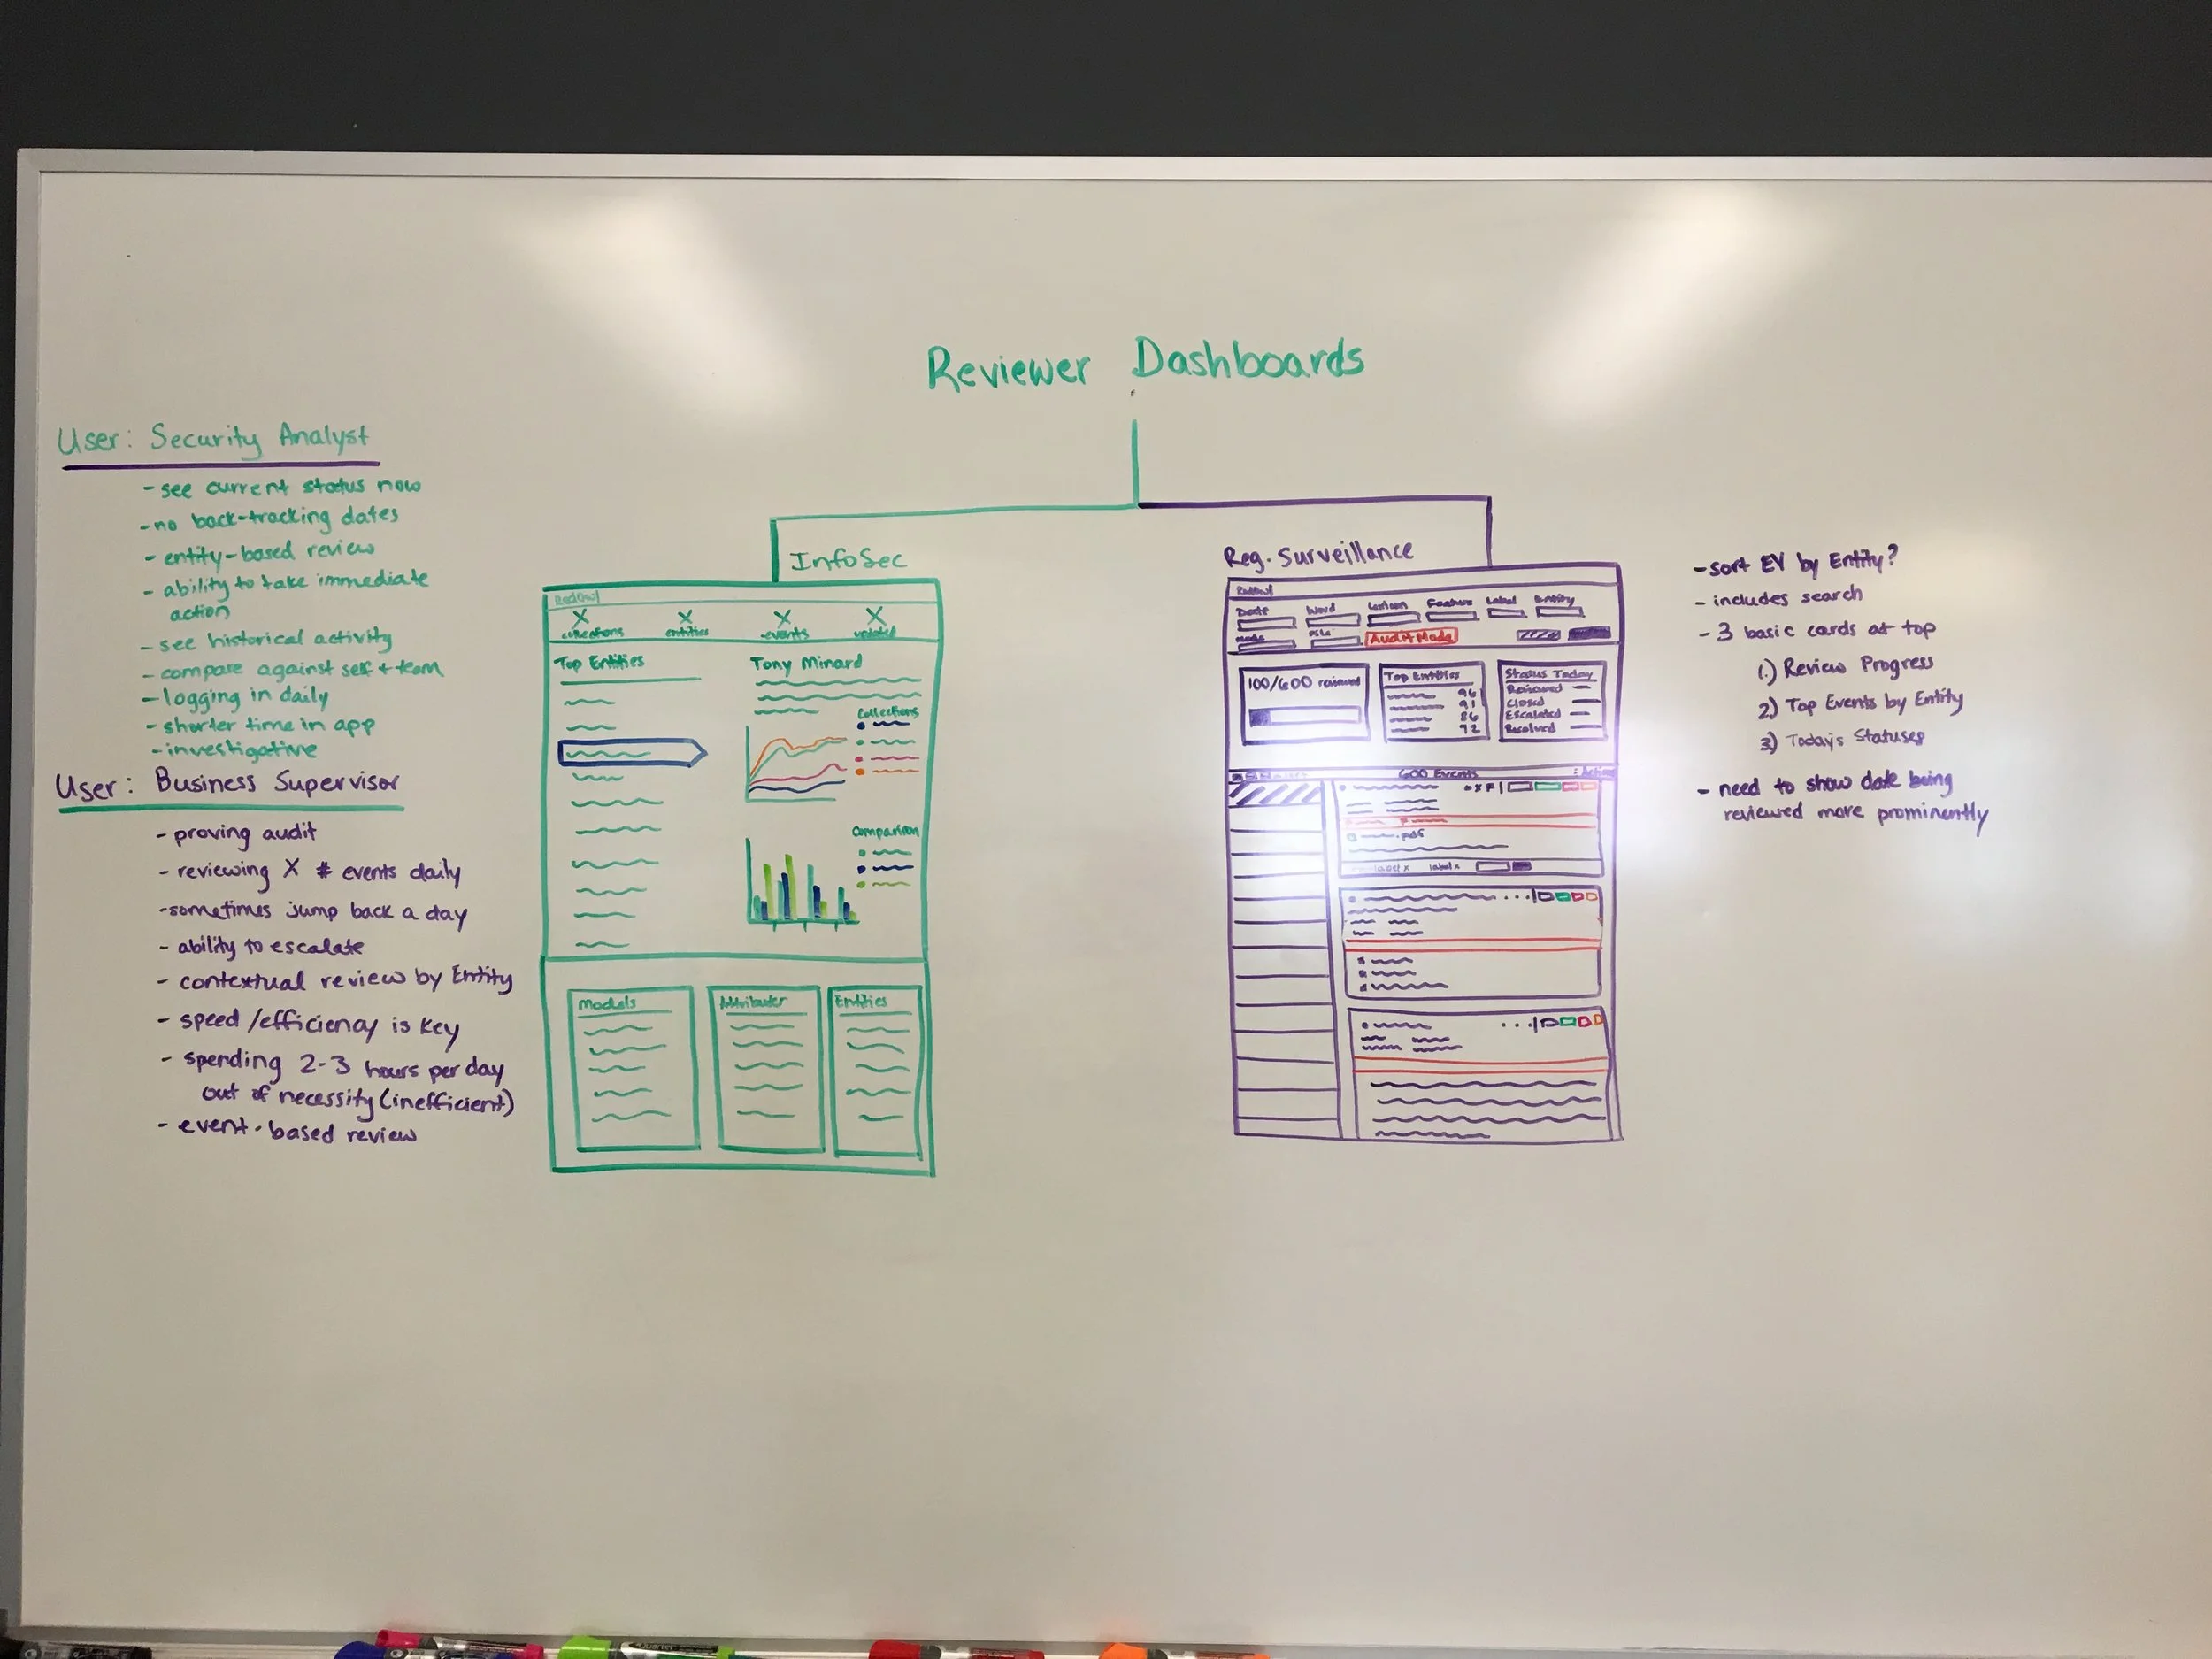 Reviewer Dashboards
User: Security Analyst
- see current status now
- no back-tracking dates
- entity-based review
- ability to take immediate
action
- see historical activity
- compare against self + team
- logging in daily
- shorter time in app
- investigative
User: Business Supervisor
- proving audit
- reviewing X # events daily
- sometimes jump back a day
- ability to escalate
- contextual review by Entity
- speed/efficiency is key
- spending 2-3 hours per day
out of necessity (inefficient)
- event-based review
InfoSec
RedOwl
X X X X
collections entities events updated
Top Entities
Tony Minard
Collections
Comparison
Models
Attributes
Entities
Reg. Surveillance
RedOwl
Date Word Lexicon Feature Label Entity
Mode
Audit Mode
100/600 reviewed
Top Entities
96
91
86
72
Status Today
Reviewed
Closed
Escalated
Resolved
600 Events
.pdf
label x label x
- sort EV by Entity?
- includes search
- 3 basic cards at top
1.) Review Progress
2) Top Events by Entity
3) Today's Statuses
- need to show date being
reviewed more prominently